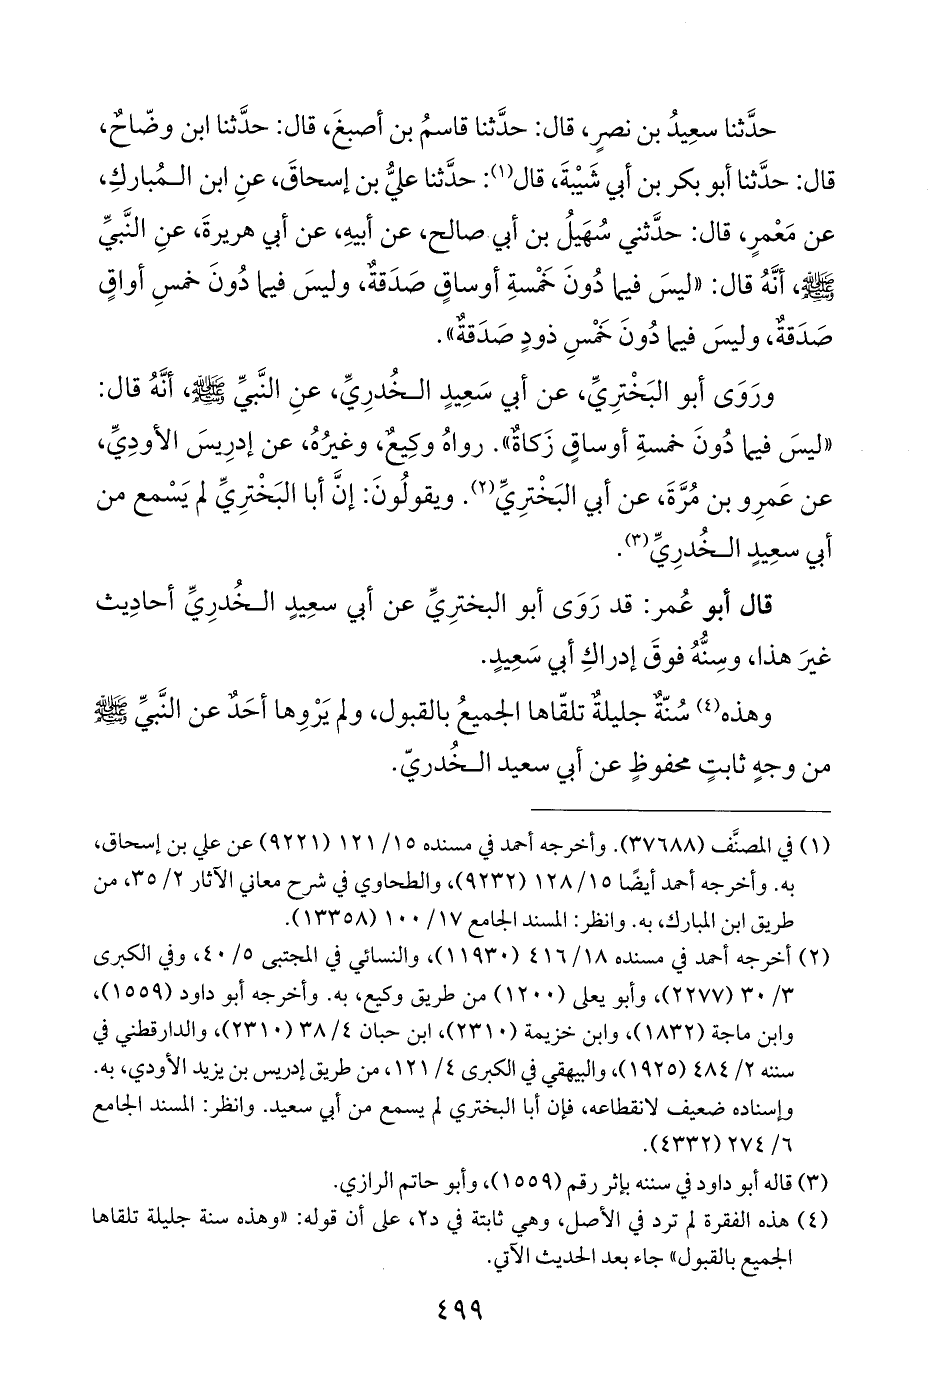 حدَّثنا سعِيدُ بن نصرٍ، قال: حدَّثنا قاسمُ بن أصبغَ، قال: حدَّثنا ابن وضّاحُ،
قال: حدَّثنا أبو بكر بن أبي شَيْبةَ، قال(١): حدَّثنا عليُّ بن إسحاقَ، عنِ ابن الـمُباركِ،
عن مَعْمرٍ، قال: حدَّثني سُهَيلُ بن أبي صالح، عن أبيهِ، عن أبي هريرةَ، عنِ النَّبيِّ
ﷺ، أنَّهُ قال: «ليسَ فيما دُونَ خَمْسةِ أوساقٍ صَدَقةٌ، وليسَ فيما دُونَ خمسِ أواقٍ
صَدَقةٌ، وليسَ فيما دُونَ خَمْسِ ذودٍ صَدَقةٌ».
ورَوَى أبو البَخْتريِّ، عن أبي سَعِيدٍ الـخُدريِّ، عنِ النَّبيِّ ﷺ، أنَّهُ قال:
«ليسَ فيما دُونَ خمسةِ أوساقٍ زَكاةٌ». رواهُ وكِيعٌ، وغيرُهُ، عن إدريسَ الأودِيِّ،
عن عَمرِو بن مُرَّةَ، عن أبي البَخْتريِّ(٢). ويقولُونَ: إنَّ أبا البَخْتريِّ لم يَسْمع من
أبي سعِيدٍ الـخُدريِّ(٣).
قال أبو عُمر: قد رَوَى أبو البختريِّ عن أبي سعِيدٍ الـخُدريِّ أحادِيث
غيرَ هذا، وسِنُّهُ فوقَ إدراكِ أبي سَعِيدٍ.
وهذه(٤) سُنّةٌ جليلةٌ تلقّاها الجميعُ بالقبول، ولم يَرْوِها أحَدٌ عن النَّبيِّ ﷺ
من وجهٍ ثابتٍ محفوظٍ عن أبي سعيد الـخُدريّ.
(١) في المصنَّف (٣٧٦٨٨). وأخرجه أحمد في مسنده ١٥/ ١٢١ (٩٢٢١) عن علي بن إسحاق،
به. وأخرجه أحمد أيضًا ١٥/ ١٢٨ (٩٢٣٢)، والطحاوي في شرح معاني الآثار ٢/ ٣٥، من
طريق ابن المبارك، به. وانظر: المسند الجامع ١٧/ ١٠٠ (١٣٣٥٨).
(٢) أخرجه أحمد في مسنده ١٨/ ٤١٦ (١١٩٣٠)، والنسائي في المجتبى ٥/ ٤٠، وفي الكبرى
٣/ ٣٠ (٢٢٧٧)، وأبو يعلى (١٢٠٠) من طريق وكيع، به. وأخرجه أبو داود (١٥٥٩)،
وابن ماجة (١٨٣٢)، وابن خزيمة (٢٣١٠)، ابن حبان ٤/ ٣٨ (٢٣١٠)، والدارقطني في
سننه ٢/ ٤٨٤ (١٩٢٥)، والبيهقي في الكبرى ٤/ ١٢١، من طريق إدريس بن يزيد الأودي، به.
وإسناده ضعيف لانقطاعه، فإن أبا البختري لم يسمع من أبي سعيد. وانظر: المسند الجامع
٦/ ٢٧٤ (٤٣٣٢).
(٣) قاله أبو داود في سننه بإثر رقم (١٥٥٩)، وأبو حاتم الرازي.
(٤) هذه الفقرة لم ترد في الأصل، وهي ثابتة في د٢، على أن قوله: «وهذه سنة جليلة تلقاها
الجميع بالقبول» جاء بعد الحديث الآتي.
٤٩٩